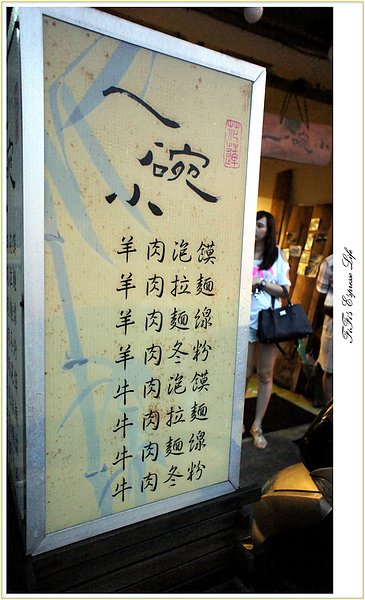 一碗小
花蓮
羊肉泡饃
羊肉拉麵
羊肉麵線
羊肉冬粉
牛肉泡饃
牛肉拉麵
牛肉麵線
牛肉冬粉
FiFi's Espresso Life